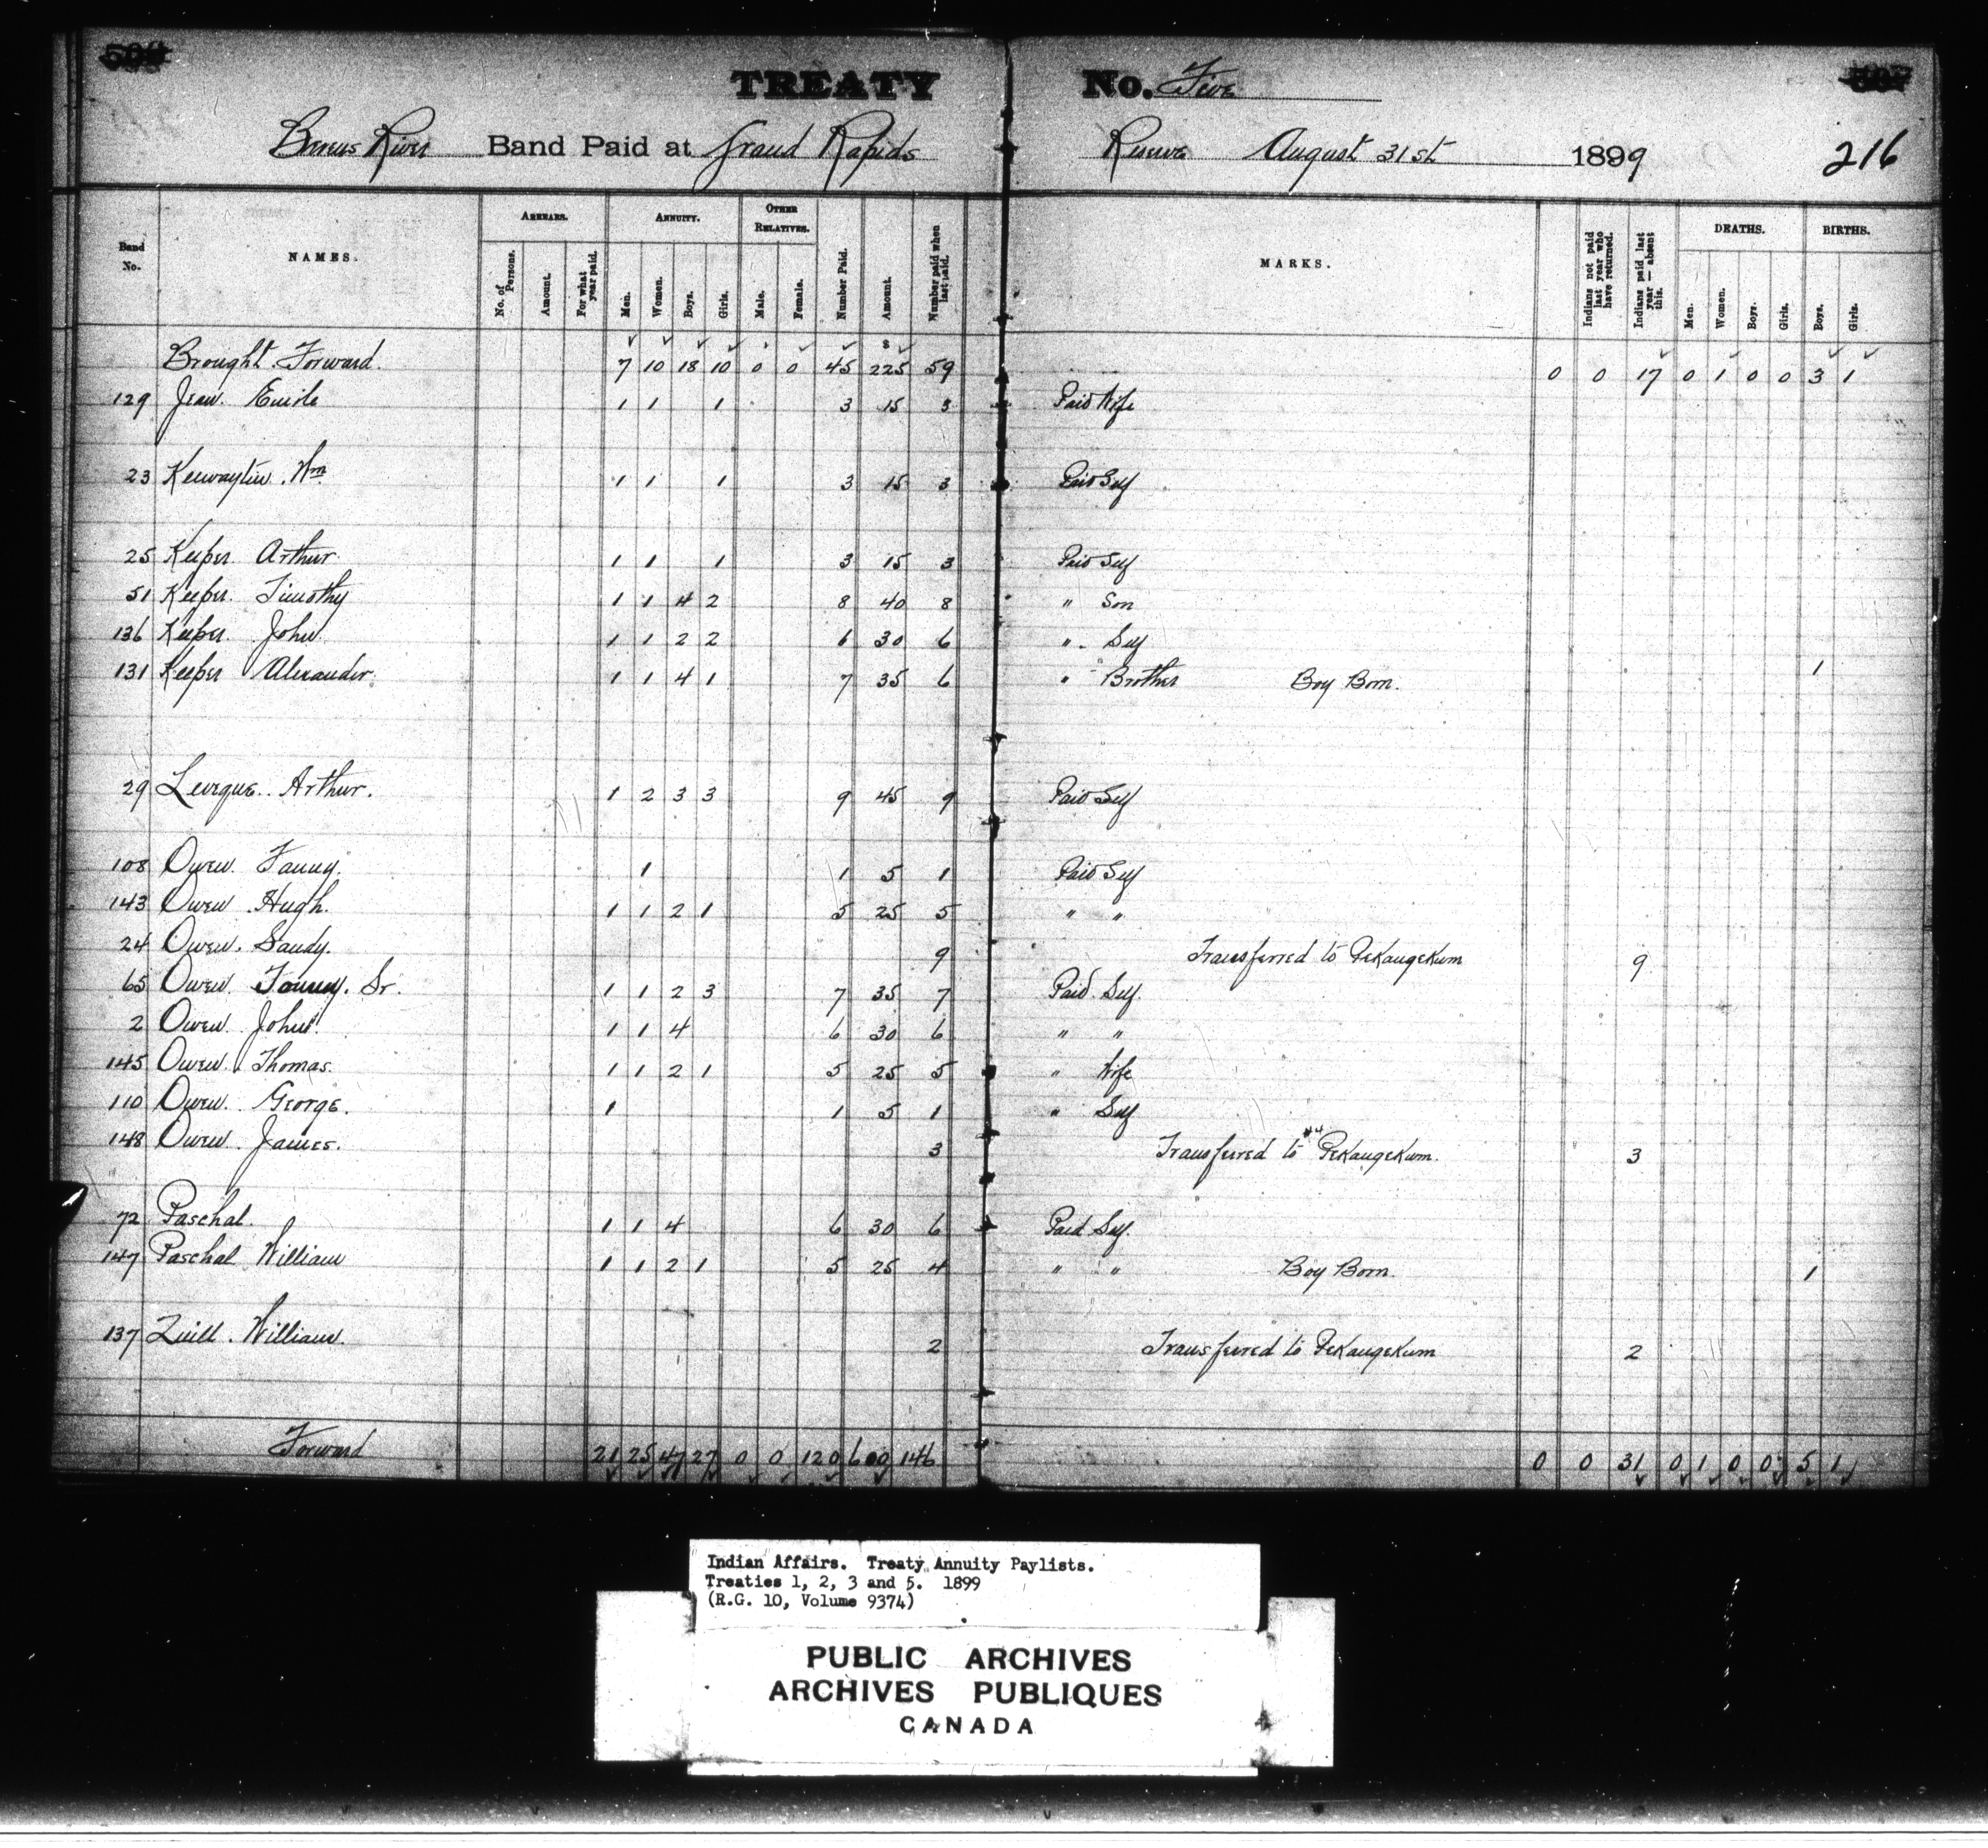 TREATY No. Five
Berens River Band Paid at Grand Rapids Reserve August 31st 1899 216
Band No. NAMES. ARREARS. ANNUITY. OTHER RELATIVES. Number Paid. Amount. Number paid when last paid. MARKS. Indians not paid last year who have returned. Indians paid last year — absent this. DEATHS. BIRTHS.
No. of Persons. Amount. For what year paid. Men. Women. Boys. Girls. Male. Female. Men. Women. Boys. Girls. Boys. Girls.
Brought Forward. 7 10 18 10 0 0 45 $ 225 59 0 0 17 0 1 0 0 3 1
129 Jean Emile 1 1 1 3 15 3 Paid Wife
23 Keewaytin. Wm 1 1 1 3 15 3 Paid Self
25 Keeper Arthur 1 1 1 3 15 3 Paid Self
51 Keeper. Timothy 1 1 4 2 8 40 8 " Son
136 Keeper. John 1 1 2 2 6 30 6 " Self
131 Keeper Alexander. 1 1 4 1 7 35 6 " Brother Boy Born. 1
29 Leveque. Arthur. 1 2 3 3 9 45 9 Paid Self
108 Owen. Fanny. 1 1 5 1 Paid Self
143 Owen Hugh. 1 1 2 1 5 25 5 " "
24 Owen. Sandy. 9 Transferred to Pekangekum 9
65 Owen. Tommy. Sr. 1 1 2 3 7 35 7 Paid Self.
2 Owen. John 1 1 4 6 30 6 " "
145 Owen. Thomas. 1 1 2 1 5 25 5 " Wife
110 Owen. George. 1 1 5 1 " Self
148 Owen James. 3 Transferred to Pekangekum. 3
72 Paschal. 1 1 4 6 30 6 Paid Self.
147 Paschal William 1 1 2 1 5 25 4 " " Boy Born. 1
137 Quill. William. 2 Transferred to Pekangekum 2
Forward 21 25 47 27 0 0 120 600 146 0 0 31 0 1 0 0 5 1
Indian Affairs. Treaty Annuity Paylists.
Treaties 1, 2, 3 and 5. 1899
(R.G. 10, Volume 9374)
PUBLIC ARCHIVES
ARCHIVES PUBLIQUES
CANADA